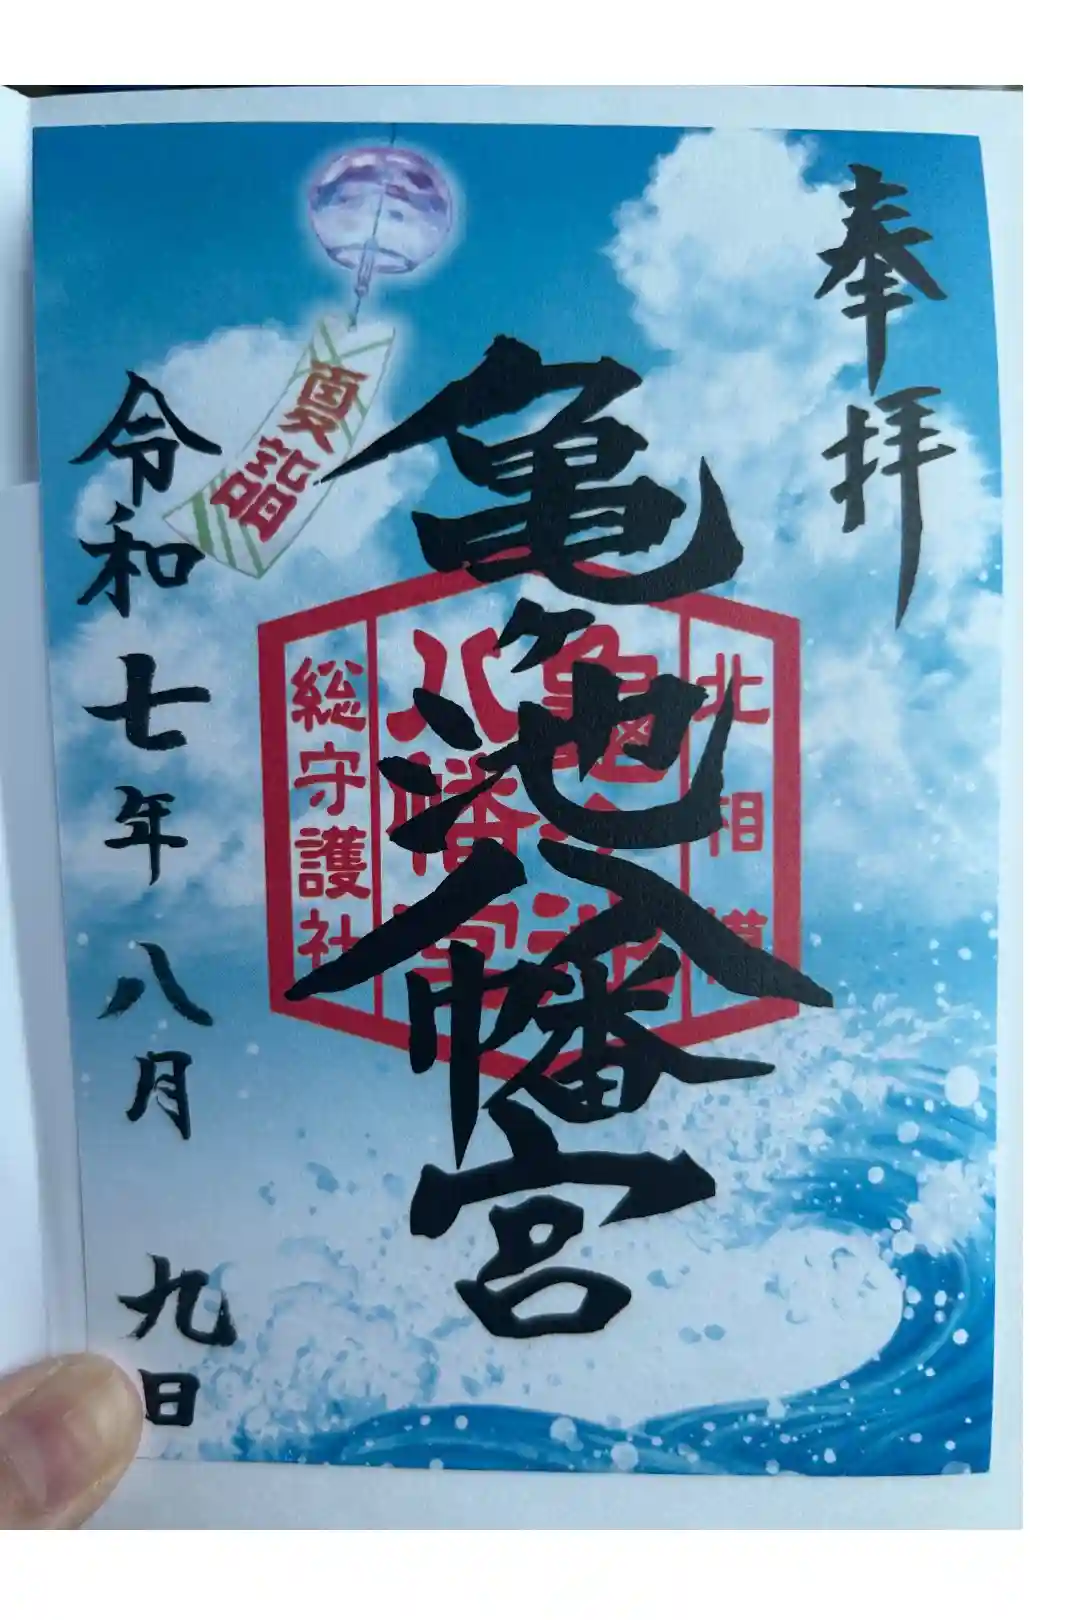 奉拝
亀ヶ池八幡宮
北相模
亀ヶ池
八幡宮
総守護社
夏詣
令和七年八月九日